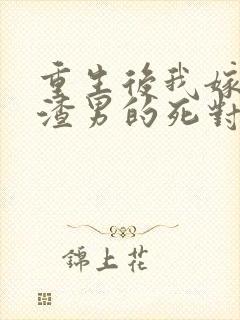 重生後我嫁
渣男的死對
錦上花